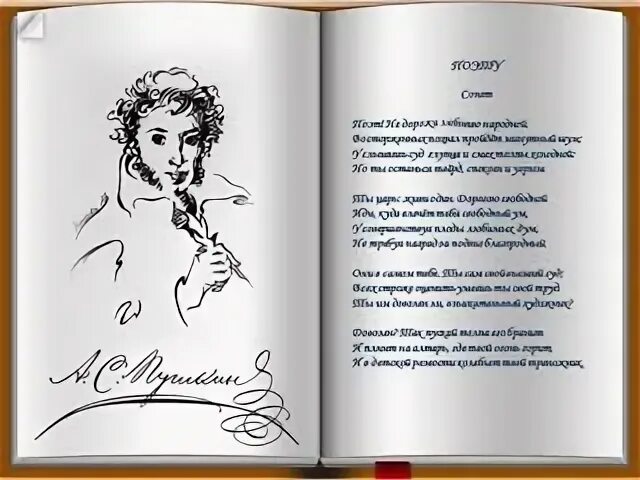 А. С. Пушкин
ПОЭТУ
Сонет
Поэт! Не дорожи любовию народной.
Восторженных похвал пройдёт минутный шум;
Услышишь суд глупца и смех толпы холодной:
Но ты останься твёрд, спокоен и угрюм.
Ты царь: живи один. Дорогою свободной
Иди, куда влечёт тебя свободный ум,
Усовершенствуя плоды любимых дум,
Не требуя наград за подвиг благородный.
Они в самом тебе. Ты сам свой высший суд;
Всех строже оценить умеешь ты свой труд.
Ты им доволен ли, взыскательный художник?
Доволен? Так пускай толпа его бранит
И плюет на алтарь, где твой огонь горит,
И в детской резвости колеблет твой треножник.